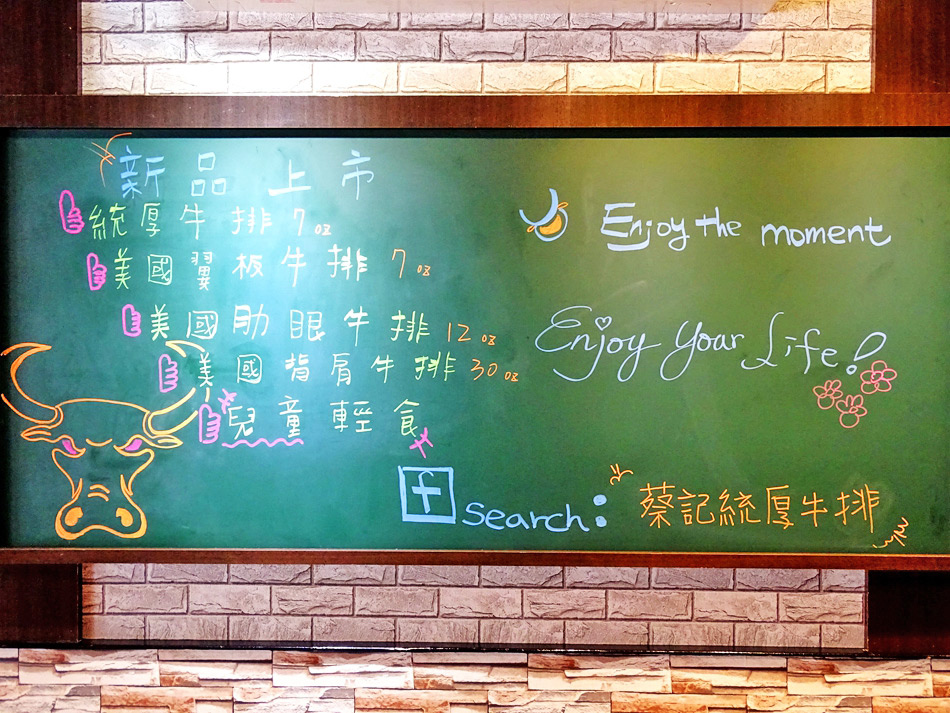 新品上市
統厚牛排 7oz
美國翼板牛排 7oz
美國肋眼牛排 12oz
美國背肩牛排 30oz
兒童輕食
Enjoy the moment
Enjoy Your Life!
f search:
蔡記統厚牛排